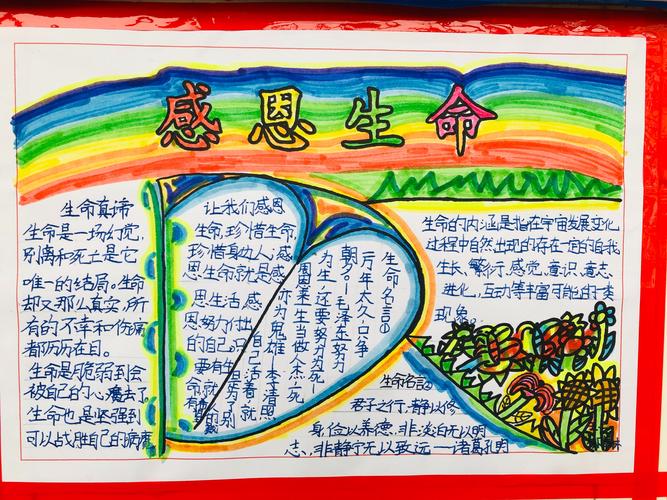 感恩生命
生命真谛
生命是一场幻觉,
别离和死亡是它
唯一的结局。生命
却又那么真实,所
有的不幸和伤痛
都历历在目。
生命是脆弱到会
被自己的小
生命也是坚强到
可以战胜自己的病魔
让我们感恩
生命,珍惜生命
珍惜身边人,感
恩生命就是感
恩生活,感
恩努力付出
的自己只
要有生
命就有
生命名言①
万年太久,只争
朝夕—毛泽东努力
为生,还要努力为死
生当做人杰,死
亦为鬼雄 李清照
自己活着,就
的别
生命的内涵是指在宇宙发展变化
过程中自然出现的存在一定的自我
生长、繁衍、感觉、意识、意志、
进化、互动等丰富可能的一类
现象。
生命名言②
君子之行,静以修
身,俭以养德,非淡泊无以明
志,非静宁无以致远—诸葛孔明